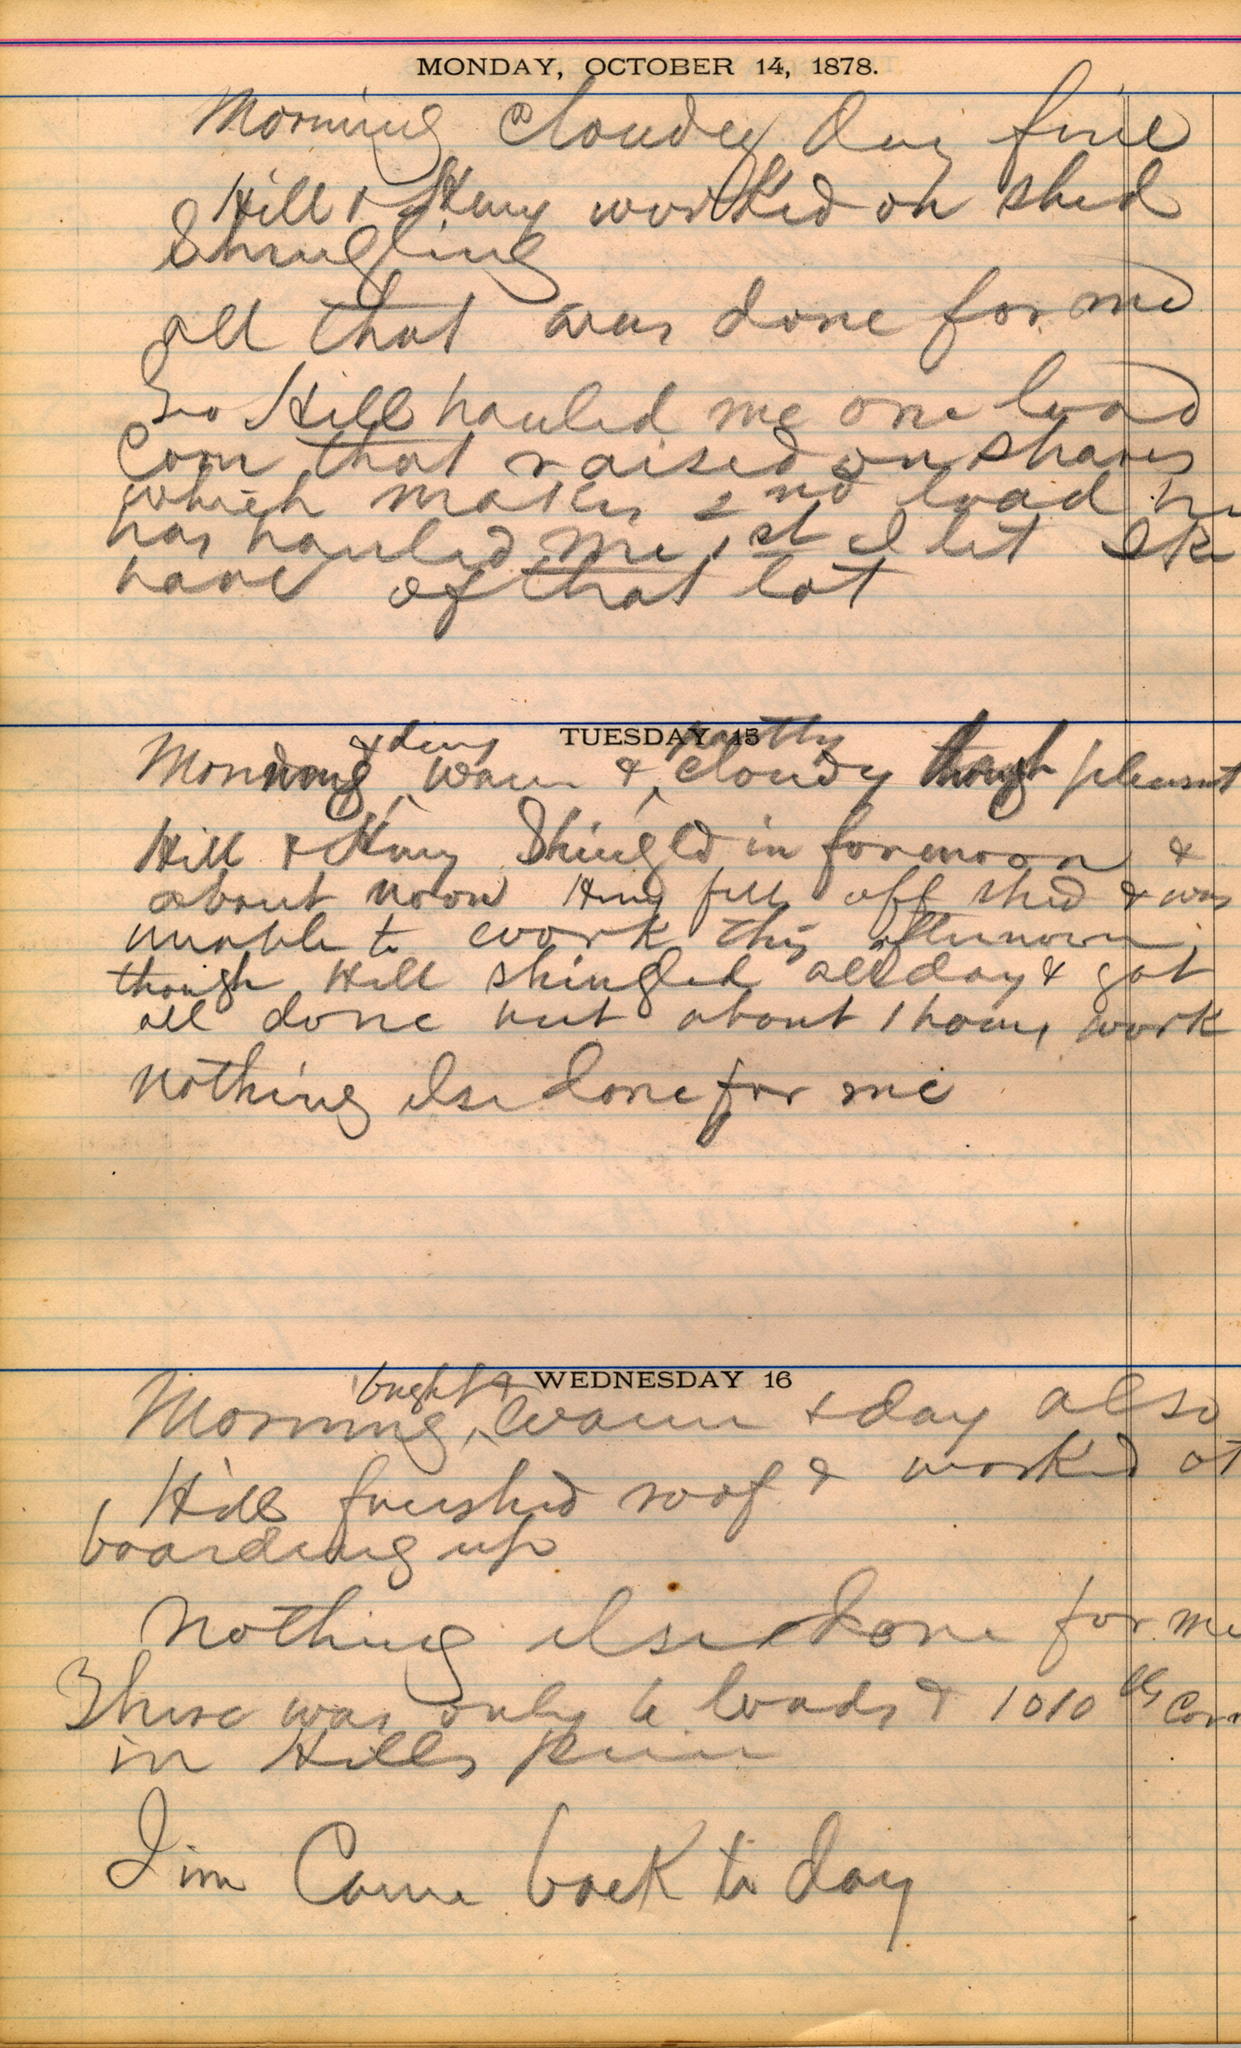 MONDAY, OCTOBER 14, 1878.
Morning Cloudey Day fine
Hill & Hary worked on shed
Shingling
all that was done for me
Geo Hill hauled me one load
Corn that raised on shares
which makes 2nd load he
has hauled me 1st I let Ike
have of that lot
TUESDAY 15
& day partly
Morning, warm & cloudy though pleasant
Hill & Hary Shingld in forenoon &
about noon Hary fell off shed & was
unable to work this afternoon
though Hill shingled all day & got
all done but about 1 hours work
Nothing else done for me
WEDNESDAY 16
bright &
Morning, warm & day also
Hill finished roof & worked at
boarding up
Nothing else done for me
There was only 6 loads & 1010 lbs Corn
in Hills
Jim Came back to day